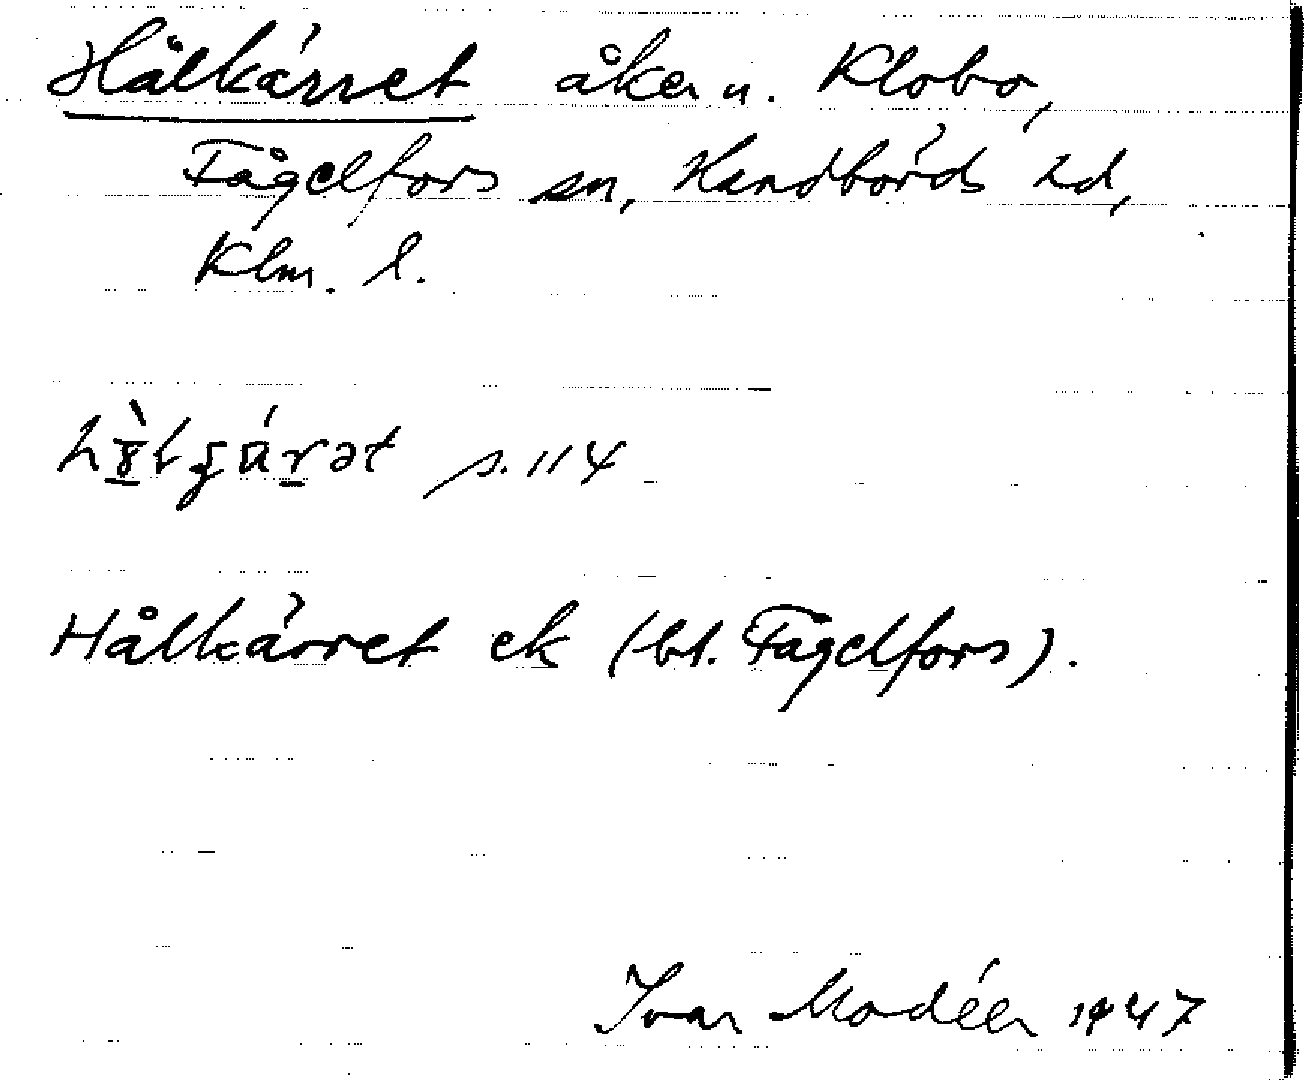 Hålkärret åker u. Klobo,
Fågelfors sn, Handbörds hd,
Klm. l.
s. 114
Hålkärret ek (bl. Fågelfors).
Ivar Modéer 1947